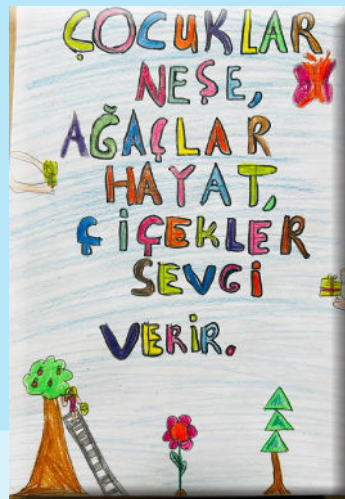 ÇOCUKLAR
NEŞE,
AĞAÇLAR
HAYAT,
ÇİÇEKLER
SEVGİ
VERİR.